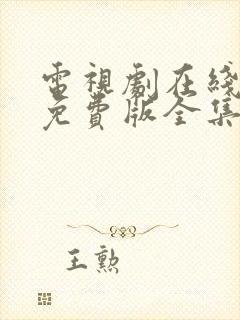 電視劇在綫
免費版全集
王勲